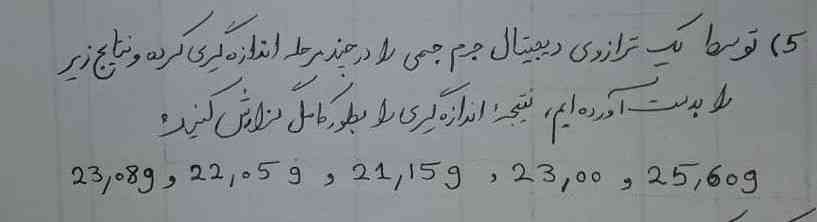 5) توسط یک ترازوی دیجیتال جرم جسمی را در چند مرحله اندازه گیری کرده و نتایج زیر
را بدست آورده ایم، نتیجه اندازه گیری را بطور کامل گزارش کنید؟
23,08g , 22,05g , 21,15g , 23,00 , 25,60g